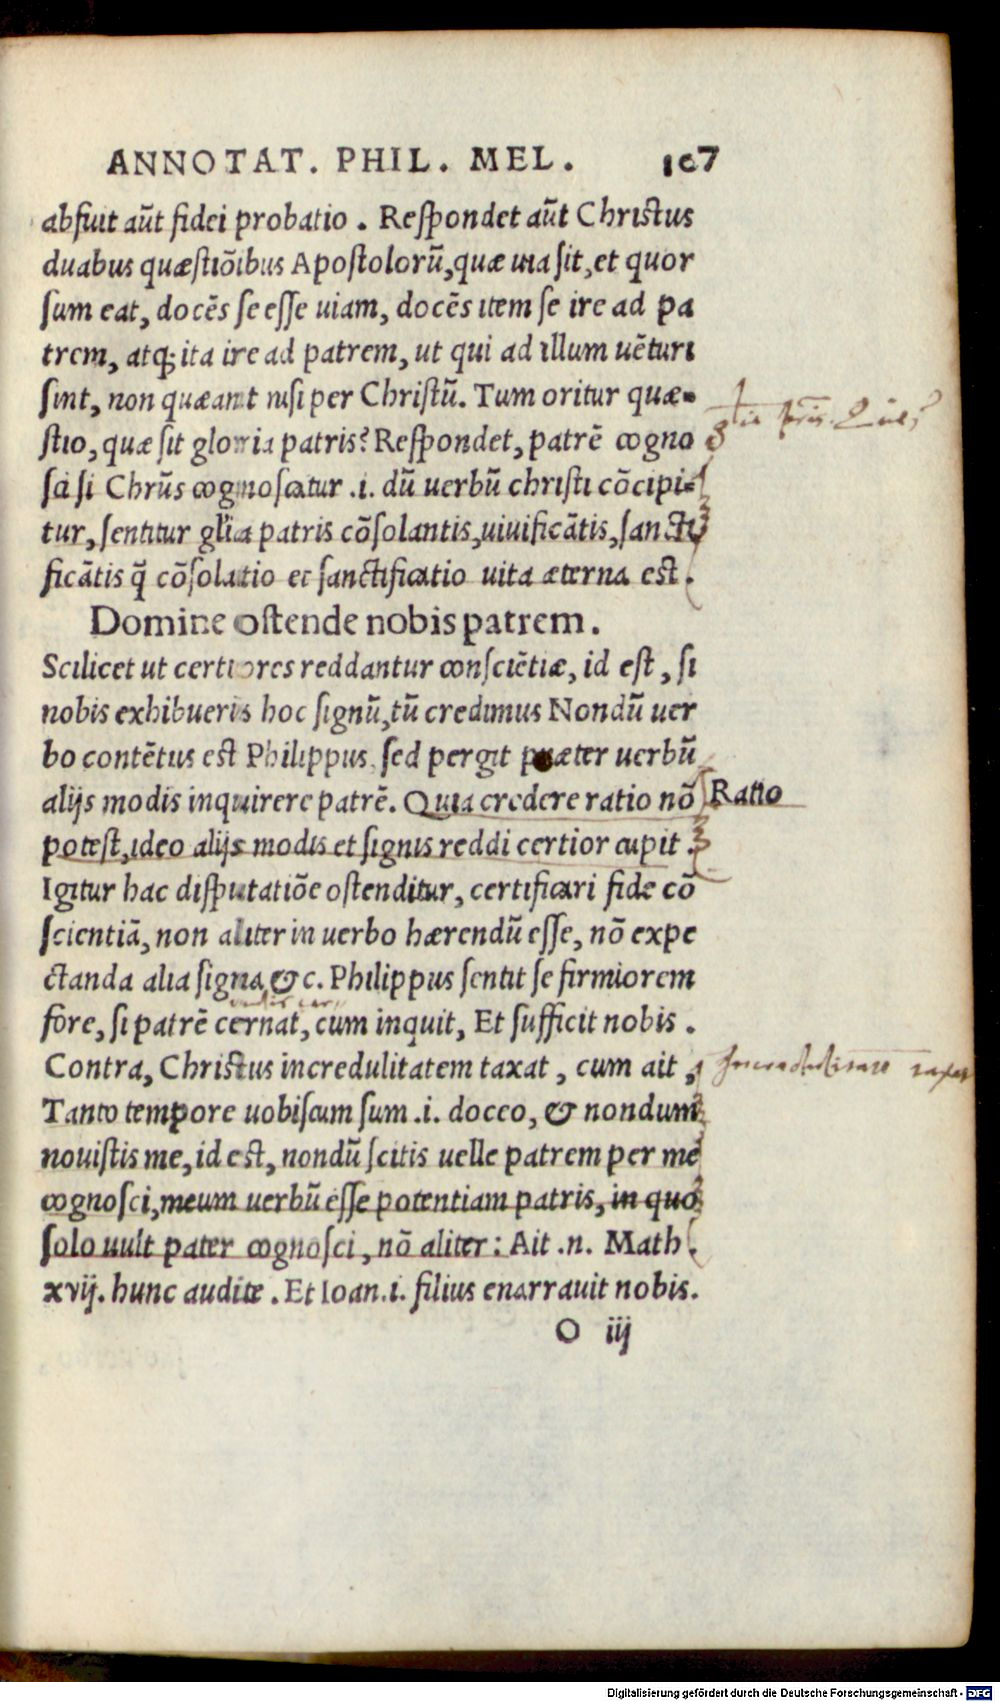 ANNOTAT. PHIL. MEL. 107
abfuit aūt fidei probatio . Respondet aūt Christus
duabus quæstiōibus Apostolorū, quæ uia sit, et quor
sum eat, docēs se esse uiam, docēs item se ire ad pa
trem, atq; ita ire ad patrem, ut qui ad illum uēturi
sint, non quæant nisi per Christū. Tum oritur quæ-
stio, quæ sit gloria patris? Respondet, patrē cogno
sci si Chrūs cognoscatur .i. dū uerbū christi cōcipi-
tur, sentitur glīa patris cōsolantis, uiuificātis, sancti
ficātis q̄ cōsolatio et sanctificatio uita æterna est.
Domine ostende nobis patrem.
Scilicet ut certiores reddantur consciētiæ, id est, si
nobis exhibueris hoc signū, tū credimus Nondū uer
bo contētus est Philippus, sed pergit præter uerbū
alijs modis inquirere patrē. Quia credere ratio nō
Ratio
potest, ideo alijs modis et signis reddi certior cupit .
Igitur hac disputatiōe ostenditur, certificari fide cō
scientiā, non aliter in uerbo hærendū esse, nō expe
ctanda alia signa, & c. Philippus sentit se firmiorem
fore, si patrē cernat, cum inquit, Et sufficit nobis .
Contra, Christus incredulitatem taxat, cum ait,
Incredulitate taxat
Tanto tempore uobiscum sum .i. doceo, & nondum
nouistis me, id est, nondū scitis uelle patrem per me
cognosci, meum uerbū esse potentiam patris, in quo
solo uult pater cognosci, nō aliter: Ait .n. Math.
xvij. hunc audite . Et Ioan.i. filius enarrauit nobis.
O iij
Digitalisierung gefördert durch die Deutsche Forschungsgemeinschaft - DFG